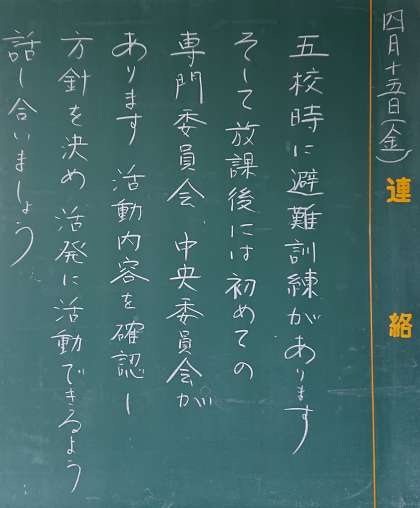 連絡
四月十五日(金)
五校時に避難訓練があります
そして放課後には初めての
専門委員会、中央委員会が
あります 活動内容を確認し
方針を決め 活発に活動できるよう
話し合いましょう